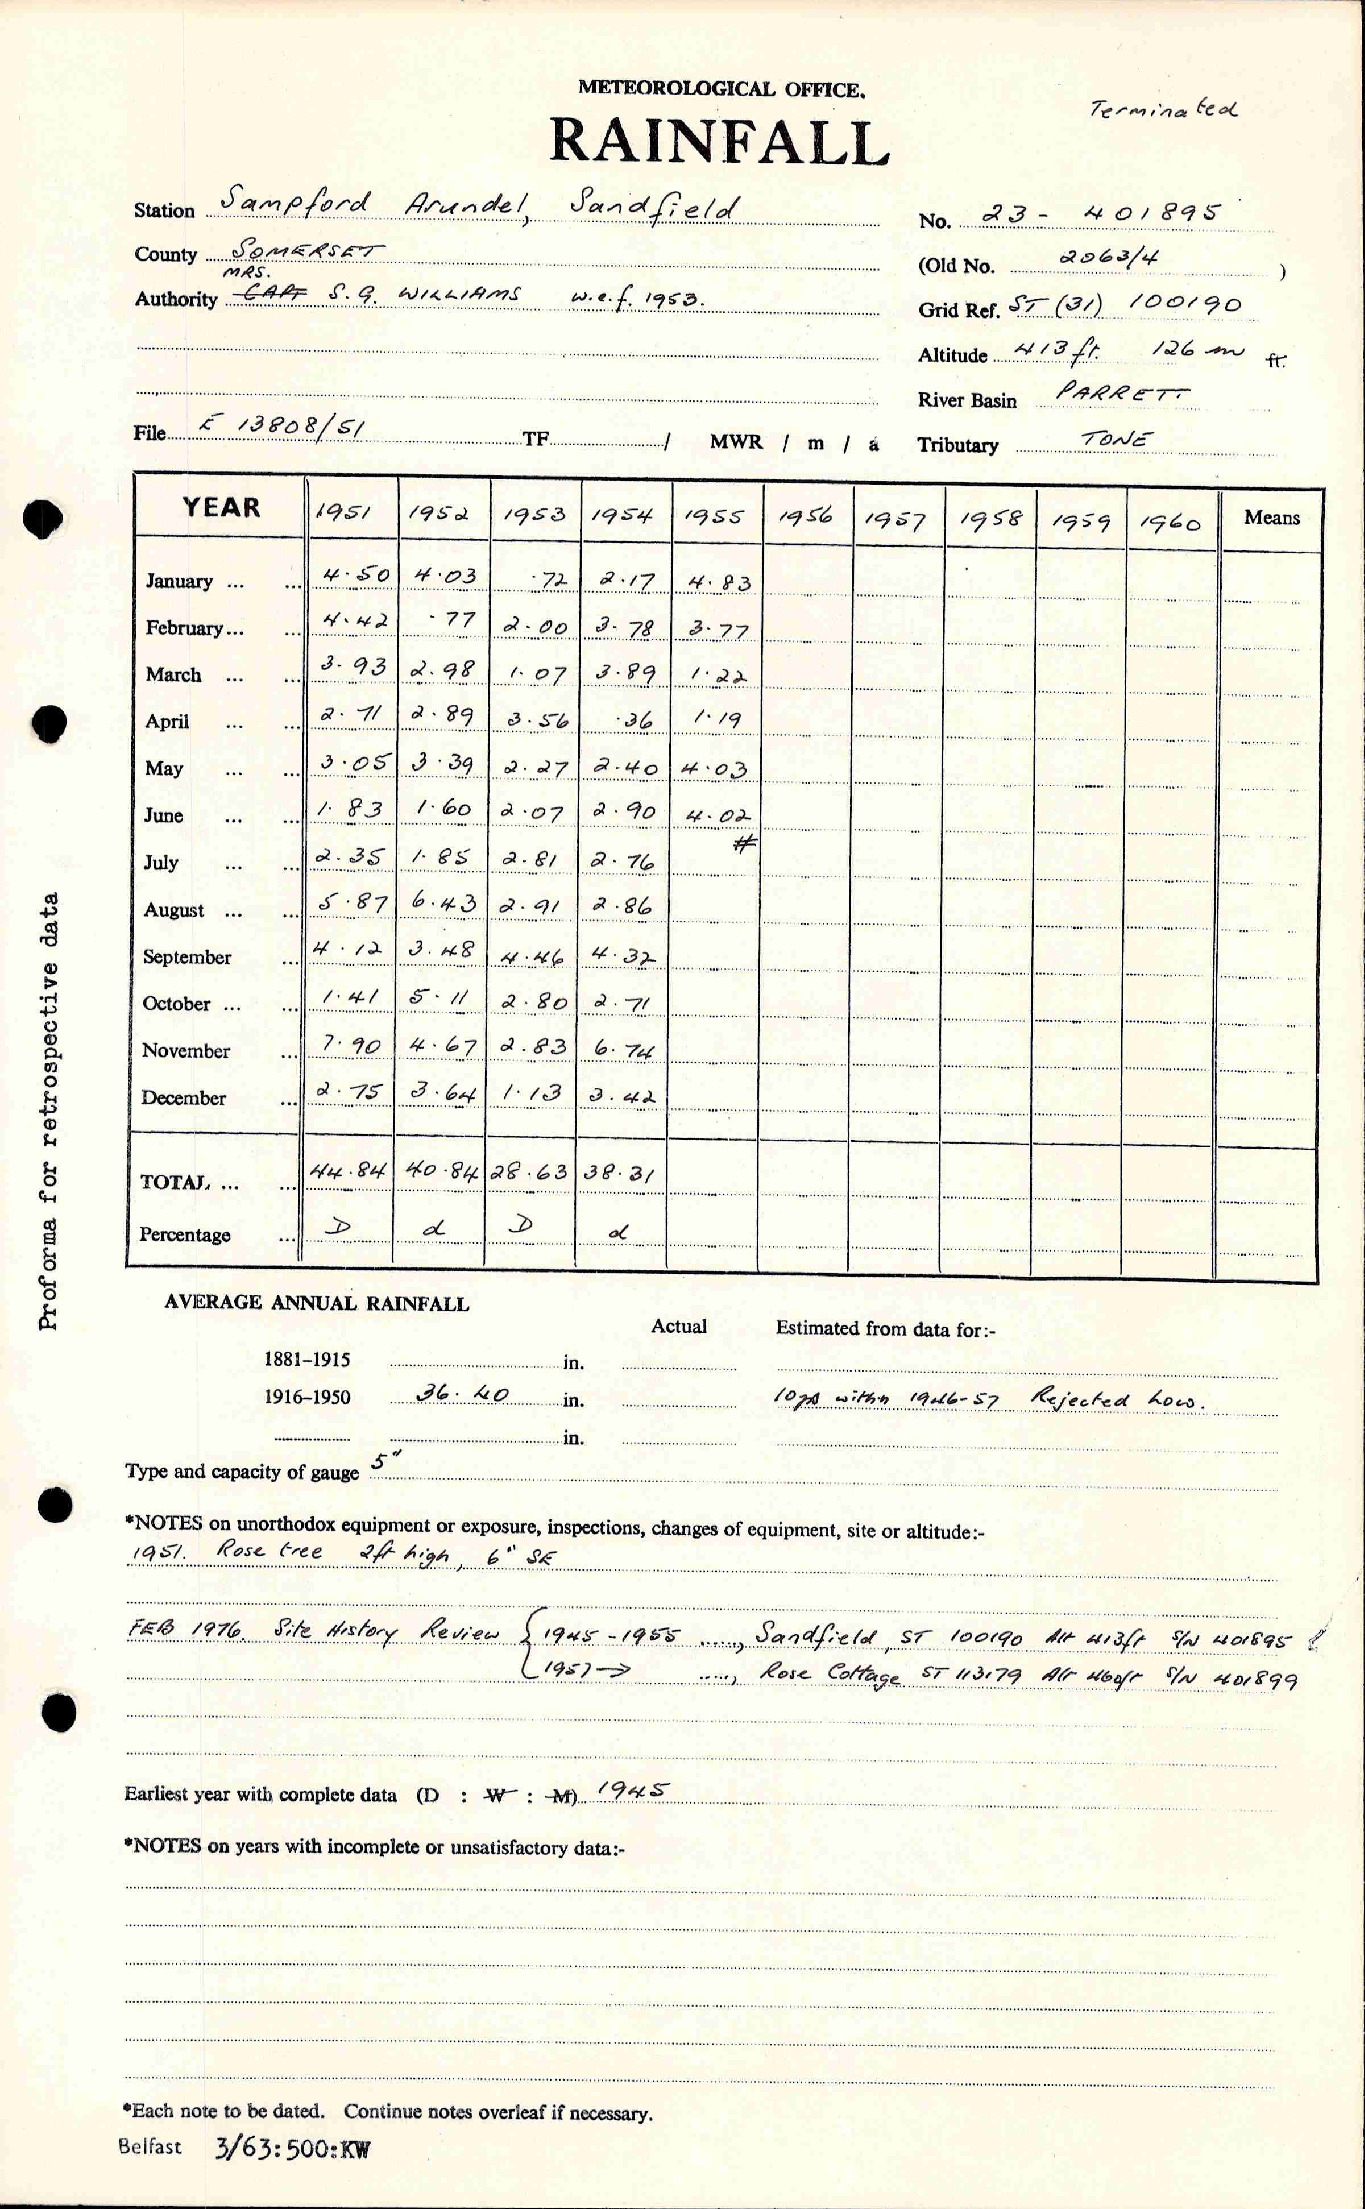 METEOROLOGICAL OFFICE.
Terminated
RAINFALL
Station Sampford Arundel, Sandfield
No. 23 - 401895
County SOMERSET
(Old No. 2063/4 )
MRS.
Authority CAPT S. G. WILLIAMS w.e.f. 1953.
Grid Ref. ST (31) 100190
Altitude 413 ft. 126 m ft.
River Basin PARRETT
File E 13808/51 TF / MWR / m / a
Tributary TONE
YEAR 1951 1952 1953 1954 1955 1956 1957 1958 1959 1960 Means
January ... ... 4.50 4.03 .72 2.17 4.83
February ... ... 4.42 .77 2.00 3.78 3.77
March ... ... 3.93 2.98 1.07 3.89 1.22
April ... ... 2.71 2.89 3.56 .36 1.19
May ... ... 3.05 3.39 2.27 2.40 4.03
June ... ... 1.83 1.60 2.07 2.90 4.02
July ... ... 2.35 1.85 2.81 2.76 #
August ... ... 5.87 6.43 2.91 2.86
September ... 4.12 3.48 4.46 4.32
October ... ... 1.41 5.11 2.80 2.71
November ... 7.90 4.67 2.83 6.74
December ... 2.75 3.64 1.13 3.42
TOTAL ... ... 44.84 40.84 28.63 38.31
Percentage ... D d D d
AVERAGE ANNUAL RAINFALL
Actual Estimated from data for:-
1881–1915 in.
1916–1950 36.40 in. 10 yrs within 1946-57 Rejected Low.
in.
Type and capacity of gauge 5"
*NOTES on unorthodox equipment or exposure, inspections, changes of equipment, site or altitude:-
1951. Rose tree 2ft high, 6" SE
FEB 1976. Site History Review { 1945 - 1955 ....., Sandfield, ST 100190 Alt 413ft S/N 401895
1957 → ....., Rose Cottage ST 113179 Alt 460ft S/N 401899
Earliest year with complete data (D : W : M) 1945
*NOTES on years with incomplete or unsatisfactory data:-
*Each note to be dated. Continue notes overleaf if necessary.
Belfast 3/63:500:KW
Proforma for retrospective data